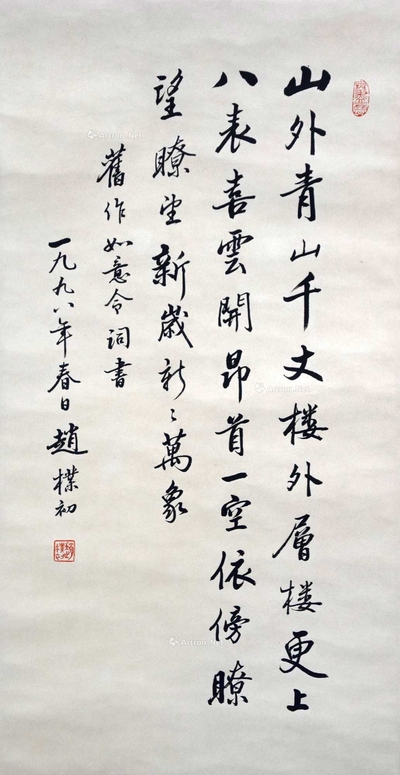 山外青山千丈楼外層楼更上
八表喜雲開昂首一空依傍瞭
望瞭望新歲新〻萬象
舊作如意令詞書
一九九八年春日趙樸初